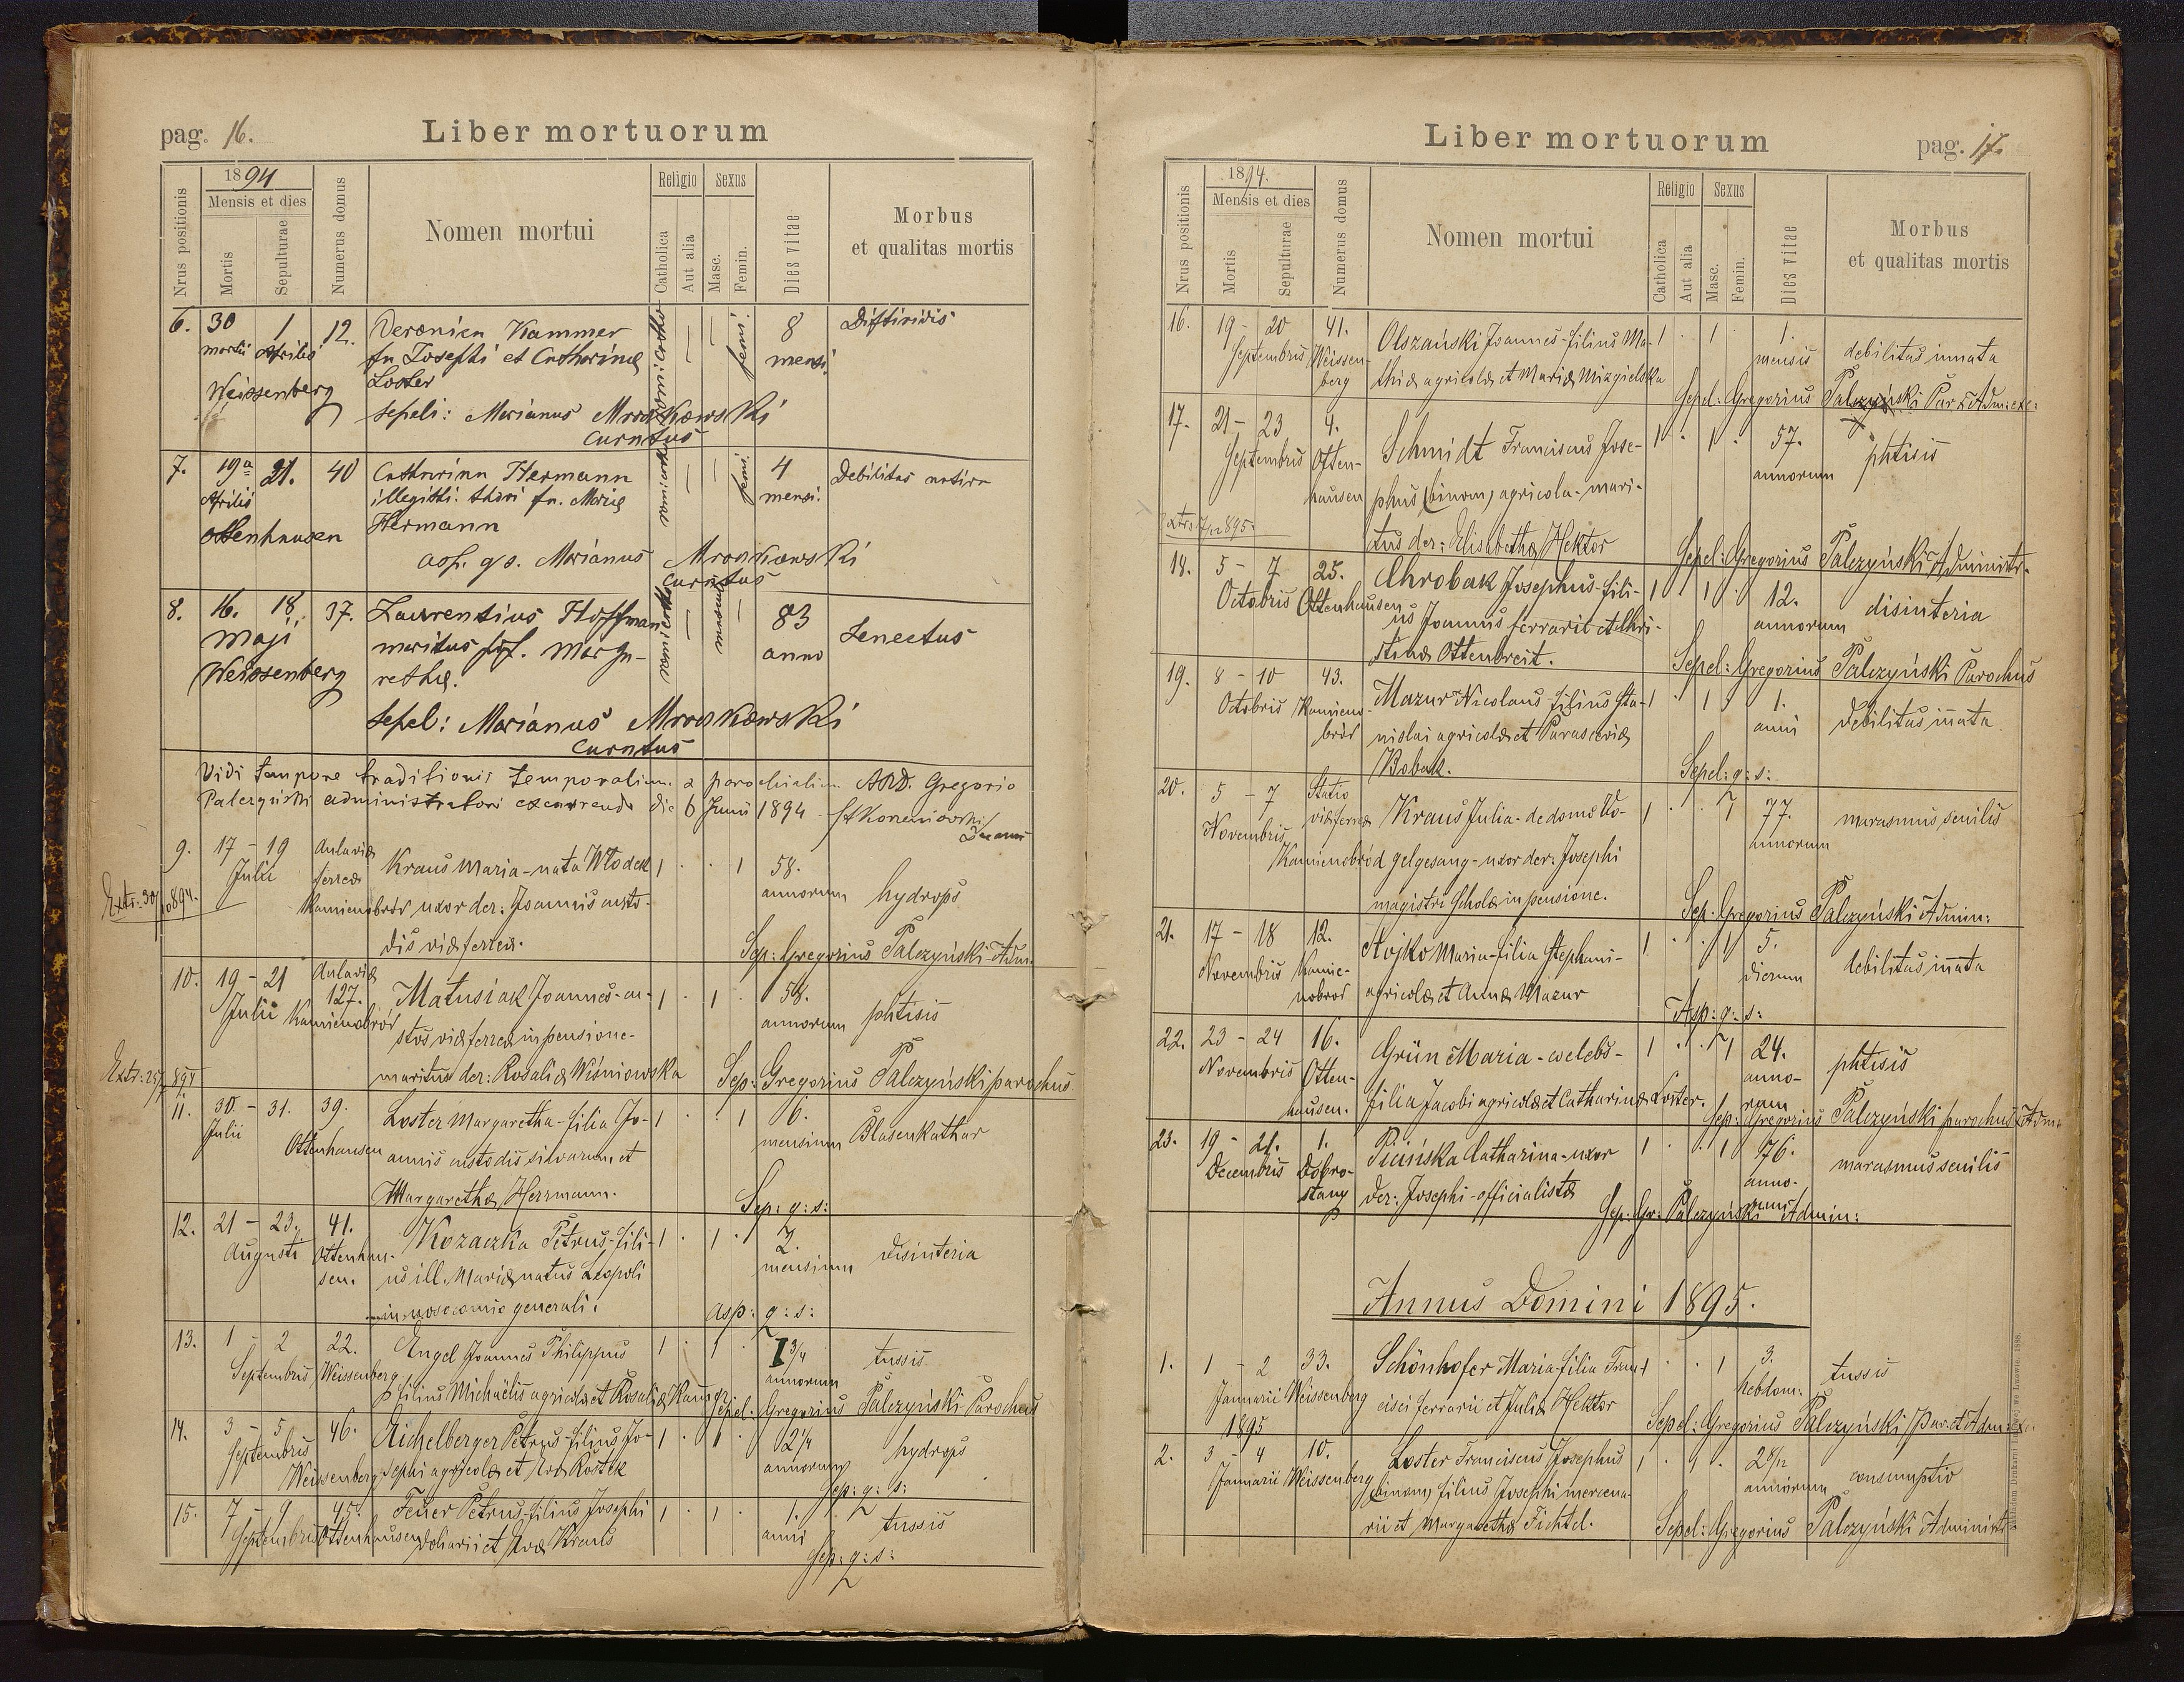 pag. 16.
Liber mortuorum
Nrus positionis
1894
Mensis et dies
Mortis
Sepulturae
Numerus domus
Nomen mortui
Religio
Catholica
Aut alia
Sexus
Masc.
Femin.
Dies vitae
Morbus
et qualitas mortis
6. 30 1 12. Veronica Kammer 8 Diftiridis
martii Aprilis fa Josephi et Catharinae femi. mensi.
Weissenberg Loster
sepeli: Marianus Mroskowski
curatus
7. 19a 21. 40 Catharina Hermann romi: catho femi. 4 Debilitas nativa
Aprilis illegitti. thori fa. Mariae mensi.
Ottenhausen Hermann
asp. q s. Marianus Mroskowski
curatus
8. 16. 18. 37. Laurentius Hoffman 83 Senectus
Maji maritus Marga- anno
Weissenberg rethae.
sepel: Marianus Mroskowski
curatus
Vidi tempore traditionis temporalium a parochialium ARD. Gregorio
Palczyński administratori excurrendo die 6 Junii 1894
9. 17 - 19 Aulavia Kraus Maria - nata Włodek 1 . . 1 58. hydrops
Julii ferrea annorum
Extr: 30/10 894.
Kamienobród uxor der: Joannis custo-
dis viae ferreae.
Sep: Gregorius Palczyński - Adm.
10. 19 - 21 Aulavia 127. Matusiak Joannes - cu- 1 . 1 . 58. phtisis
Julii Kamienobród stos viae ferreae in pensione - annorum
maritus der: Rosaliae Wiśniowska Sep: Gregorius Palczyński parochus.
11. 30. - 31. 39. Loster Margaretha - filia Jo- 1 . . 1 6. Blasenkathar
Julii Ottenhausen annis custodis silvarum, et mensium
Margarethae Herrmann. Sep: q: s:
12. 21 - 23. 41. Kozaczka Petrus - fili- 1 . 1 . 2. disinteria
Augusti Ottenhau- us ill. Mariae natus Leopoli mensium
sen. in nosocomio generali. asp: q: s:
13. 1 - 2 22. Engel Joannes Philippus 1 . 1 . 1 3/4 tussis
Septembris Weissenberg annorum
filius Michaëlis agricolae et Rosaliae Kaus Sepel: Gregorius Palczyński Parochus
14. 3 - 5 46. Aichelberger Petrus - filius Jo- 1 . 1 . 2 1/4 hydrops
Septembris Weissenberg sephi agricolae et Evae Rostek annorum
Sep: q: s:
15. 7 - 9 45. Feuer Petrus - filius Josephi 1 . 1 . 1. tussis
Septembris Ottenhausen doliarii et Evae Kraus anni
Sep: q: s:
Liber mortuorum
pag. 17.
Nrus positionis
1894.
Mensis et dies
Mortis
Sepulturae
Numerus domus
Nomen mortui
Religio
Catholica
Aut alia
Sexus
Masc.
Femin.
Dies vitae
Morbus
et qualitas mortis
16. 19 - 20 41. Olszański Joannes - filius Ma- 1 . 1 . 1. debilitas innata
Septembris Weissen- thiae agricolae et Mariae Mizgielska mensis
berg Sepel: Gregorius Palczyński Par et Adm: exc:
17. 21 - 23 4. Schmidt Franciscus Jose- 1 . 1 . 57. phtisis
Septembris Otten- phus (binom, agricola - mari- annorum
hausen
Extr. 7/12 895.
tus der: Elisabethae Hektor Sepel: Gregorius Palczyński Administr.
18. 5 - 7 25. Chrobak Josephus - fili- 1 . 1 . 12. disinteria
Octobris Ottenhausen us Joannis ferrarii et Chri- annorum
stinae Ottenbreit. Sepel: Gregorius Palczyński Parochus
19. 8 - 10 43. Mazur Nicolaus - filius Sta- 1 . 1 . 1. debilitas innata
Octobris Kamieno- nislai agricolae et Parasceviae anni
bród Bobak. Sepel: q: s:
20. 5 - 7 Statio Kraus Julia - de domo Vo- 1 . . 1 77. marasmus senilis
Novembris viae ferreae annorum
Kamienobród gelgesang - uxor der: Josephi
magistri scholae in pensione. Sep. Gregorius Palczyński Admin:
21. 17 - 18 12. Stojko Maria - filia Stephani - 1 . . 1 5. debilitas innata
Novembris Kamie- agricolae et Annae Mazur dierum
nobrod Asp: q: s:
22. 23 - 24 16. Grün Maria - coelebs - 1 . . 1 24. phtisis
Novembris Otten- anno-
hausen. filia Jacobi agricolae et Catharinae Loster. rum
Sep: Gregorius Palczyński parochus et Adm.
23. 19 - 21. 1. Picińska Catharina - uxor 1 . . 1 76. marasmus senilis
Decembris Dobro- der: Josephi - officialistae anno-
stany rum
Sep: Gr: Palczyński Admin:
Annus Domini 1895.
1. 1 - 2 33. Schönhofer Maria - filia Fran- 1 . . 1 3. tussis
Januarii Weissenberg cisci ferrarii et Juliae Hektor hebdom:
1895 Sepel: Gregorius Palczyński Par. et Adm. exc.
2. 3 - 4 10. Loster Franciscus Josephus 1 . 1 . 2 8/12 consumptio
Januarii Weissenberg (binom, filius Josephi mercena- annorum
rii et Margarethae Fichtel. Sepel: Gregorius Palczyński Administr.